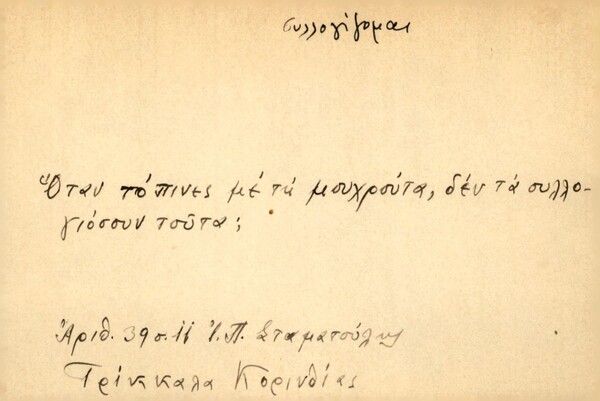 συλλογίζομαι
Ὅταν τόπινες μέ τή μουχρούτα, δέν τά συλλο-
γιόσουν τοῦτα;
Ἀριθ. 39 σ. 11 Ἰ. Π. Σταματούλης
Τρίκκαλα Κορινθίας